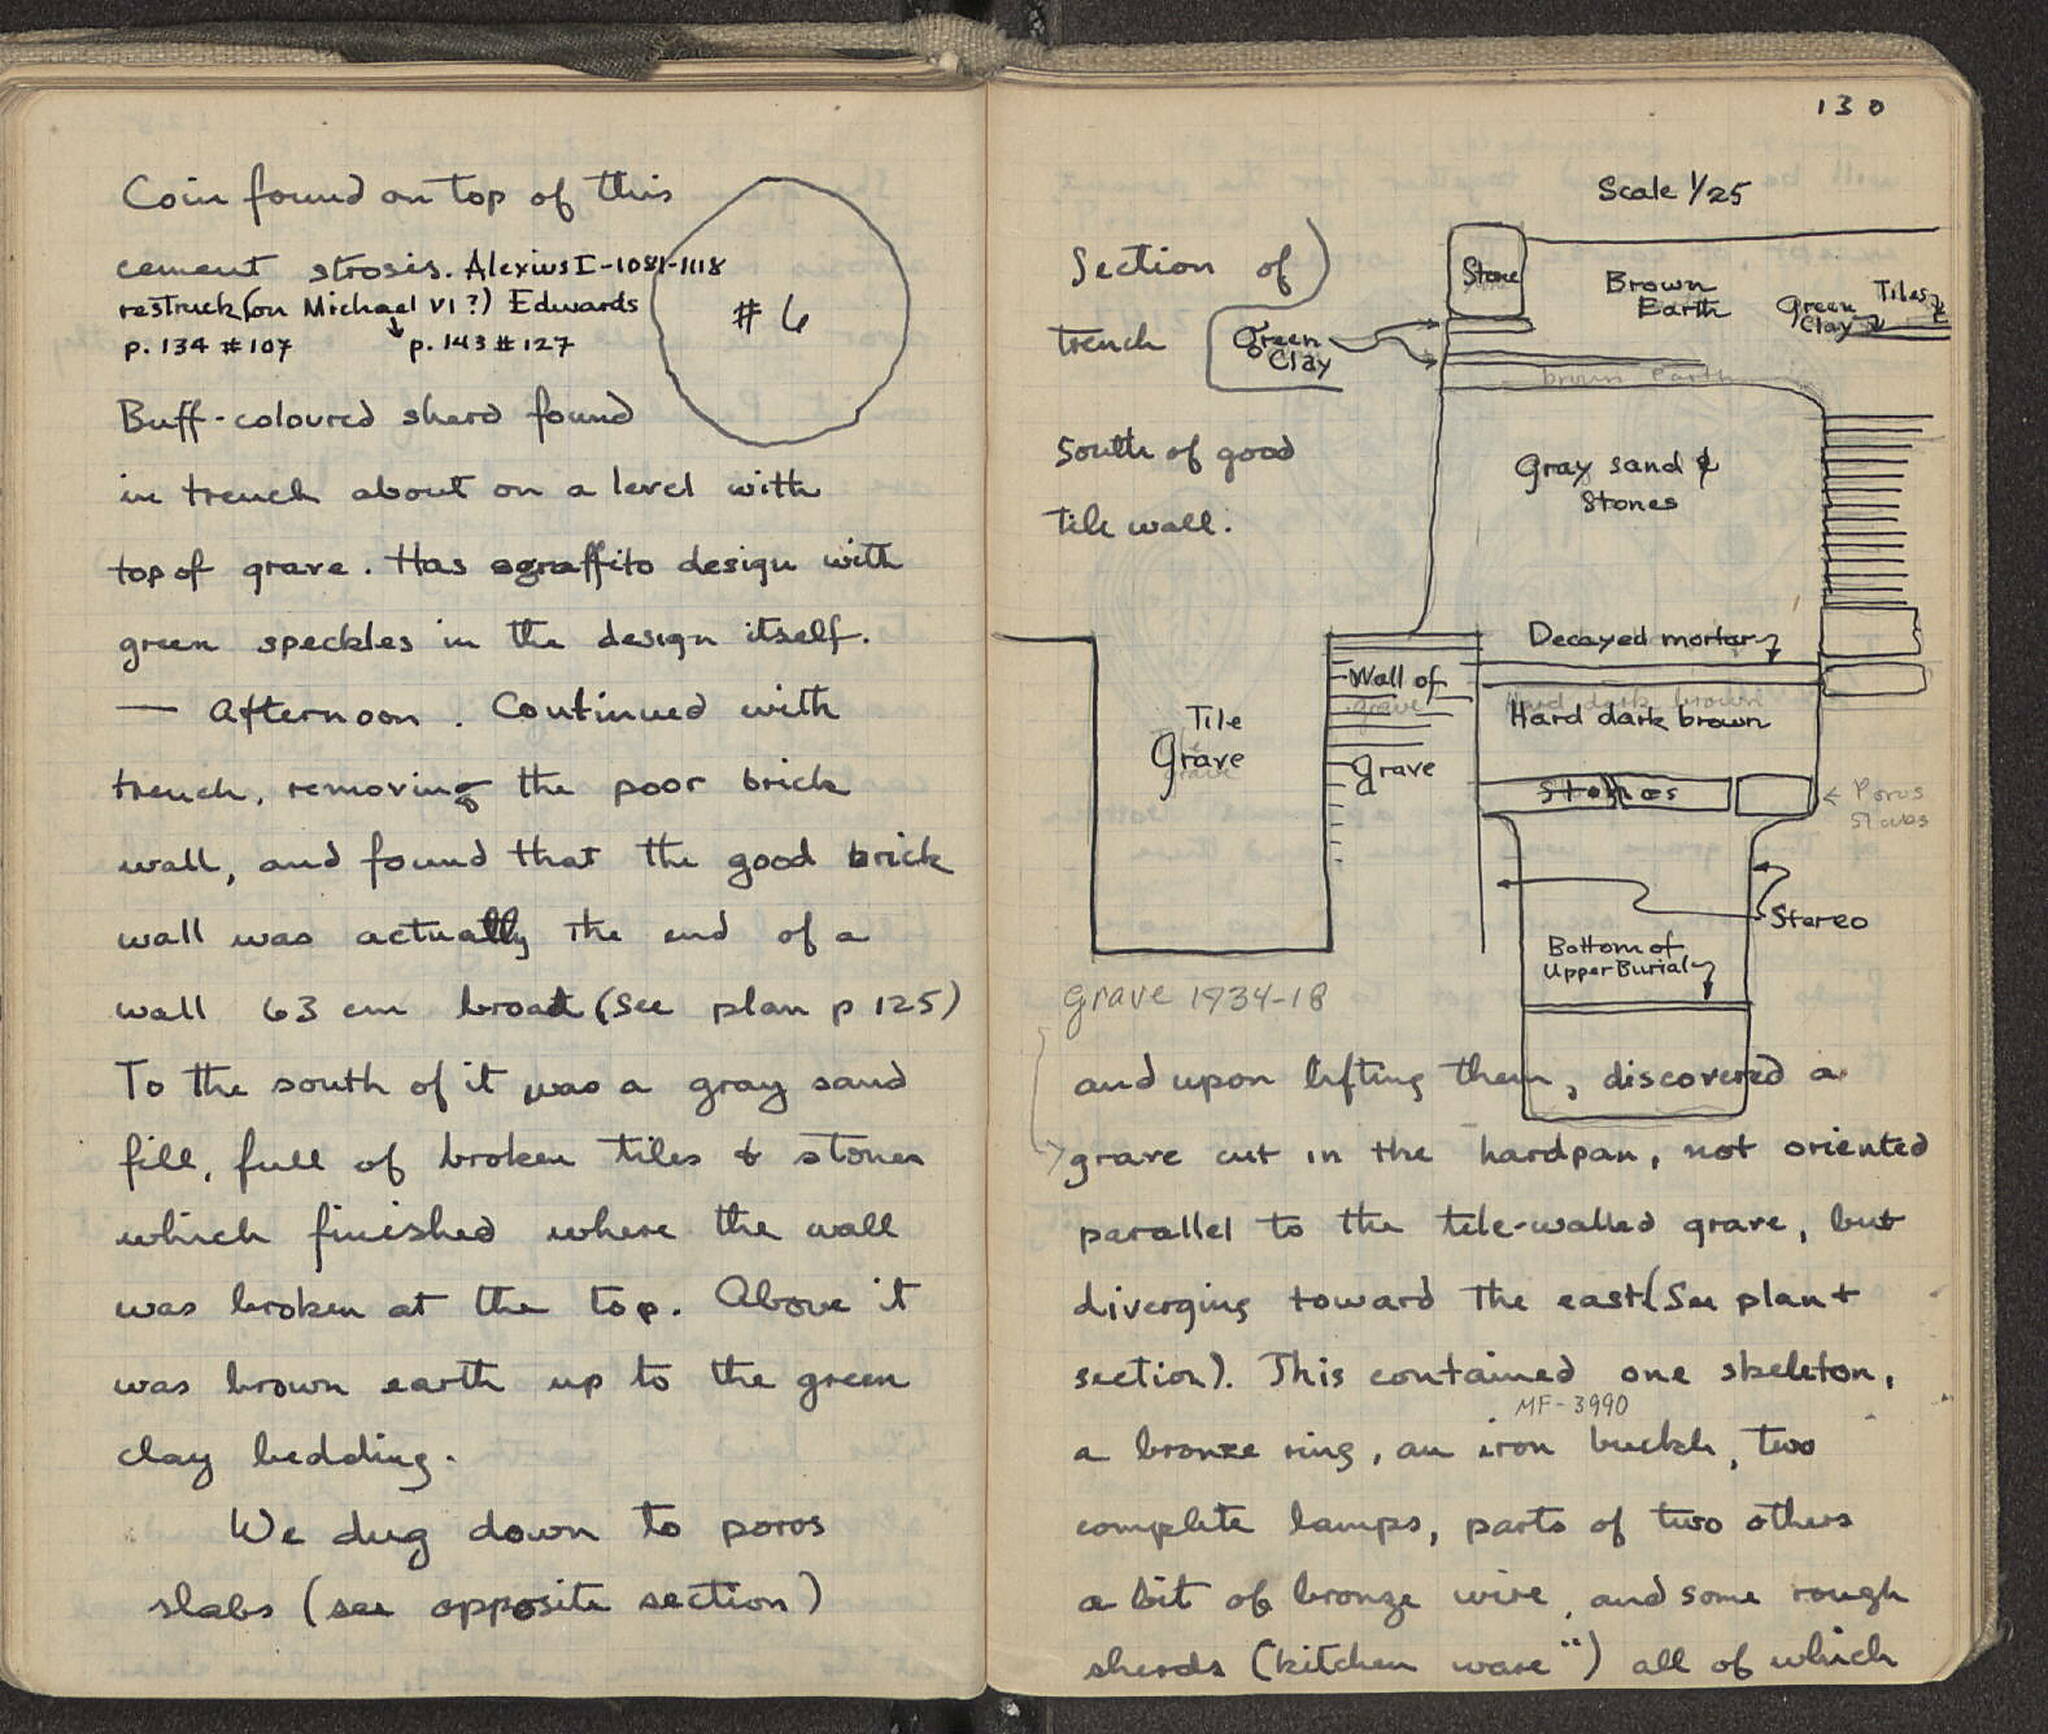 Coin found on top of this
cement strosis. Alexius I-1081-1118
restruck (on Michael VI?) Edwards
p. 134 #107 p. 143 #127
#6
Buff-coloured sherd found
in trench about on a level with
top of grave. Has sgraffito design with
green speckles in the design itself.
— Afternoon. Continued with
trench, removing the poor brick
wall, and found that the good brick
wall was actually the end of a
wall 63 cm broad (see plan p 125)
To the south of it was a gray sand
fill, full of broken tiles & stones
which finished where the wall
was broken at the top. Above it
was brown earth up to the green
clay bedding.
We dug down to poros
slabs (see opposite section)
130
Scale 1/25
Section of
trench
South of good
tile wall.
Stone
Brown
Earth
Green
Clay
Tiles
Green
Clay
brown earth
Gray sand &
Stones
Decayed mortar
Wall of
grave
Grave
Hard dark brown
Hard dark brown
Tile
Grave
grave
Stones
Poros
Slabs
Stereo
Bottom of
Upper Burial
grave 1934-18
and upon lifting them, discovered a
grave cut in the hardpan, not oriented
parallel to the tile-walled grave, but
diverging toward the east (See plan +
section). This contained one skeleton,
MF-3990
a bronze ring, an iron buckle, two
complete lamps, parts of two others
a bit of bronze wire, and some rough
sherds (kitchen ware") all of which